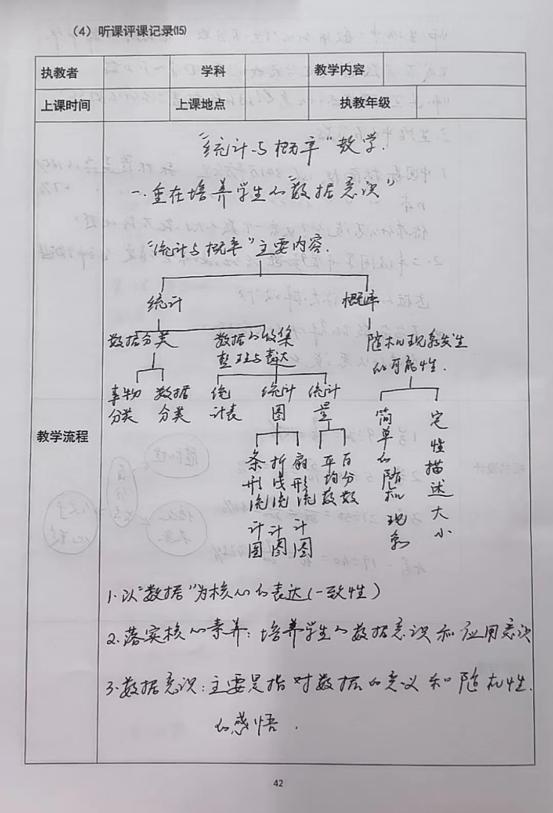 （4）听课评课记录⒂
执教者 学科 教学内容
上课时间 上课地点 执教年级
教学流程
"统计与概率"教学.
一.重在培养学生的"数据意识"
"统计与概率"主要内容.
统计 概率
数据分类 数据的收集整理与表达 随机现象发生的可能性.
事物分类 数据分类 统计表 统计图 统计量 简单的随机现象 定性描述大小
条形统计图 折线统计图 扇形统计图 平均数 百分数
1.以"数据"为核心的表达(一致性)
2.落实核心素养:培养学生的数据意识和应用意识
3.数据意识:主要是指对数据的意义和随机性
的感悟.
42